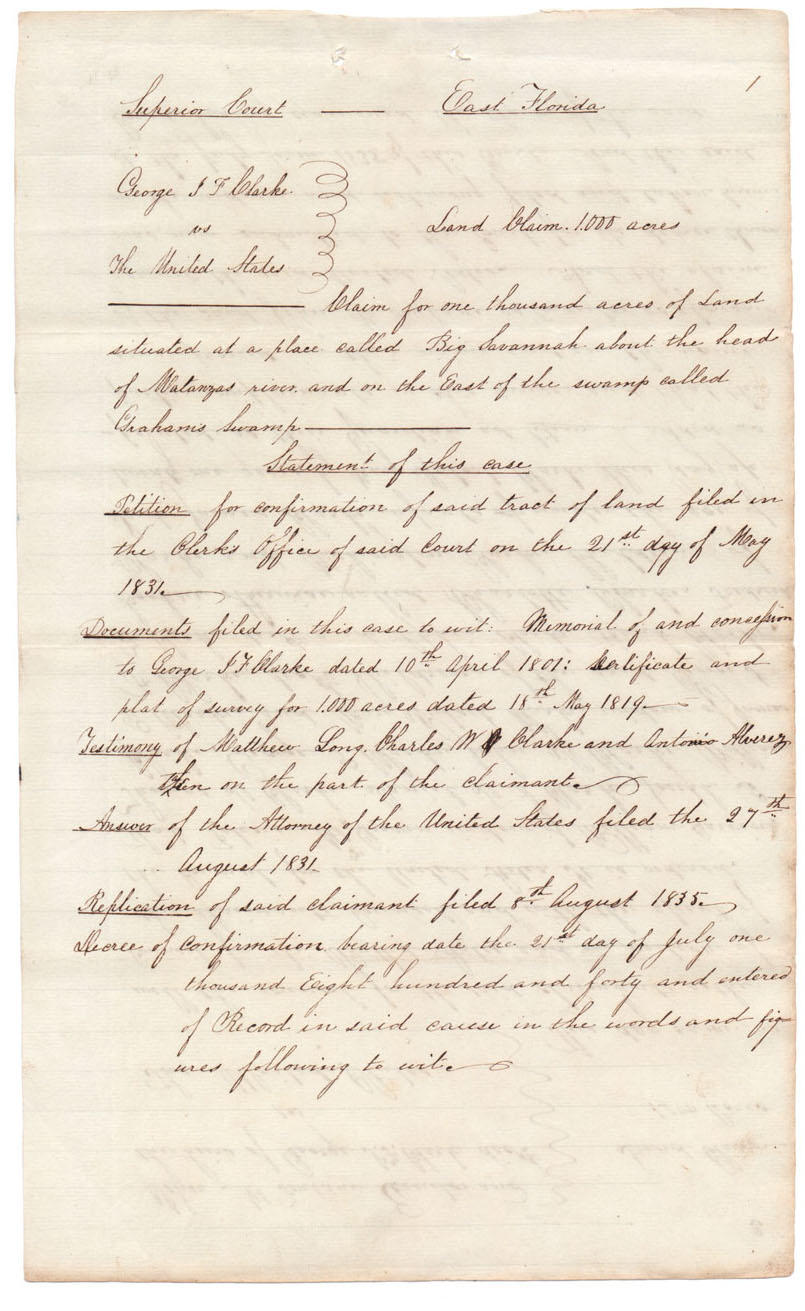 1
Superior Court — East Florida
George J F Clarke
vs
Land Claim. 1.000 acres
The United States
Claim for one thousand acres of Land
situated at a place called Big Savannah about the head
of Matanzas river, and on the East of the swamp called
Grahams Swamp—
Statement of this case
Petition for confirmation of said tract of land filed in
the Clerks Office of said Court on the 21st day of May
1831.
Documents filed in this case to wit: Memorial of and concession
to George J F Clarke dated 10th April 1801: Certificate and
plat of survey for 1.000 acres dated 18th May 1819.
Testimony of Matthew Long, Charles W Clarke and Antonio Alverez
on the part of the claimant.
Answer of the Attorney of the United States filed the 27th
August 1831.
Replication of said claimant filed 8th August 1835.
Decree of confirmation bearing date the 21st day of July one
thousand Eight hundred and forty and entered
of Record in said cause in the words and fig-
ures following to wit.